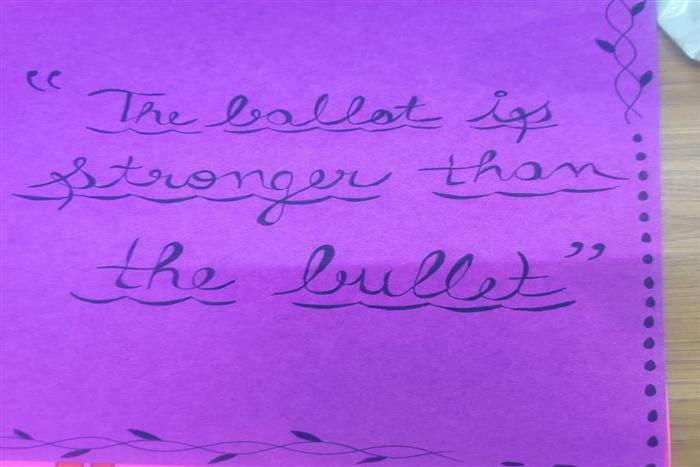 “ The ballot is
stronger than
the bullet”